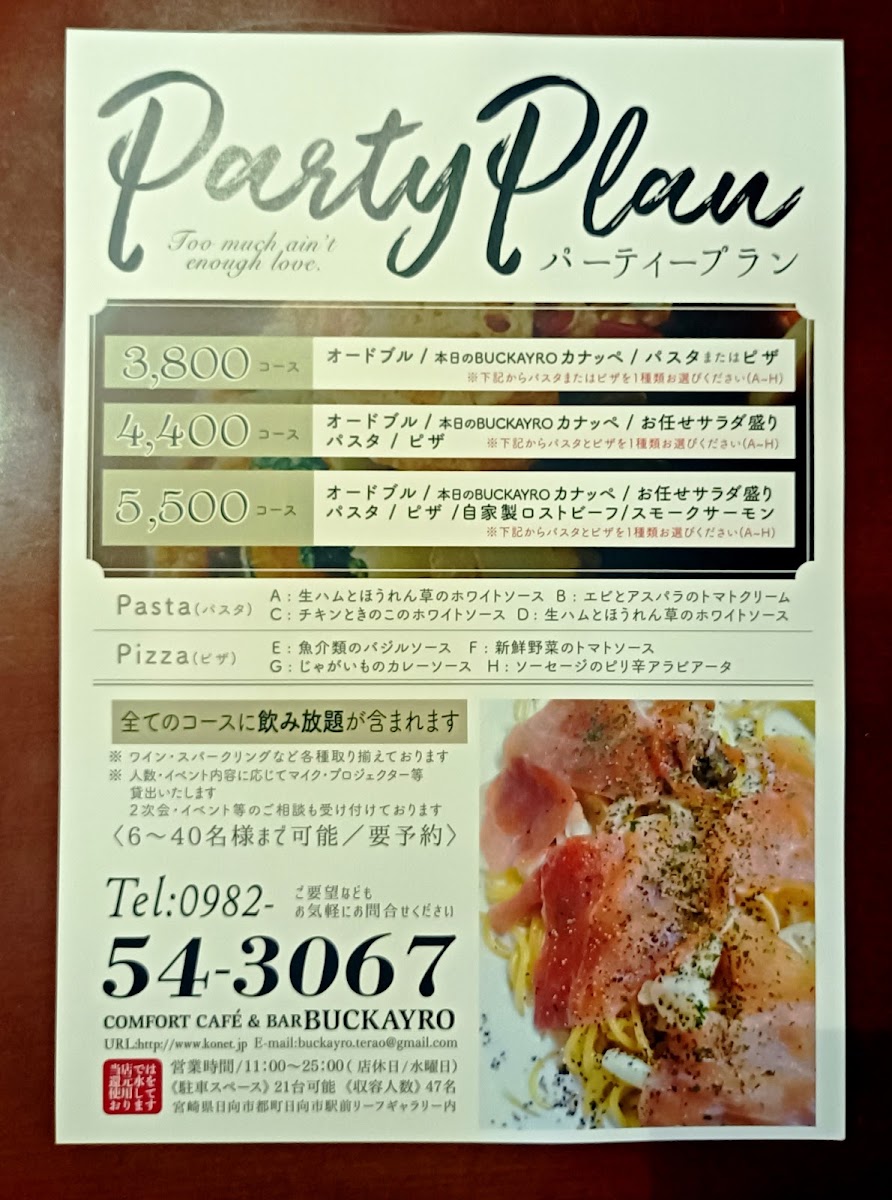 Party Plan
Too much ain't
enough love.
パーティープラン
3,800 コース
オードブル / 本日のBUCKAYRO カナッペ / パスタまたはピザ
※下記からパスタまたはピザを1種類お選びください(A~H)
4,400 コース
オードブル / 本日のBUCKAYRO カナッペ / お任せサラダ盛り
パスタ / ピザ
※下記からパスタとピザを1種類お選びください(A~H)
5,500 コース
オードブル / 本日のBUCKAYRO カナッペ / お任せサラダ盛り
パスタ / ピザ /自家製ロストビーフ/スモークサーモン
※下記からパスタとピザを1種類お選びください(A~H)
Pasta(パスタ)
A : 生ハムとほうれん草のホワイトソース B : エビとアスパラのトマトクリーム
C : チキンときのこのホワイトソース D : 生ハムとほうれん草のホワイトソース
Pizza(ピザ)
E : 魚介類のバジルソース F : 新鮮野菜のトマトソース
G : じゃがいものカレーソース H : ソーセージのピリ辛アラビアータ
全てのコースに飲み放題が含まれます
※ ワイン・スパークリングなど各種取り揃えております
※ 人数・イベント内容に応じてマイク・プロジェクター等
貸出いたします
2次会・イベント等のご相談も受け付けております
〈6〜40名様まで可能／要予約〉
Tel:0982-
ご要望なども
お気軽にお問合せください
54-3067
COMFORT CAFÉ & BAR BUCKAYRO
URL:http://www.konet.jp E-mail:buckayro.terao@gmail.com
当店では
還元水を
使用して
おります
営業時間/11:00〜25:00( 店休日/水曜日)
《駐車スペース》21台可能 《収容人数》47名
宮崎県日向市都町日向市駅前リーフギャラリー内